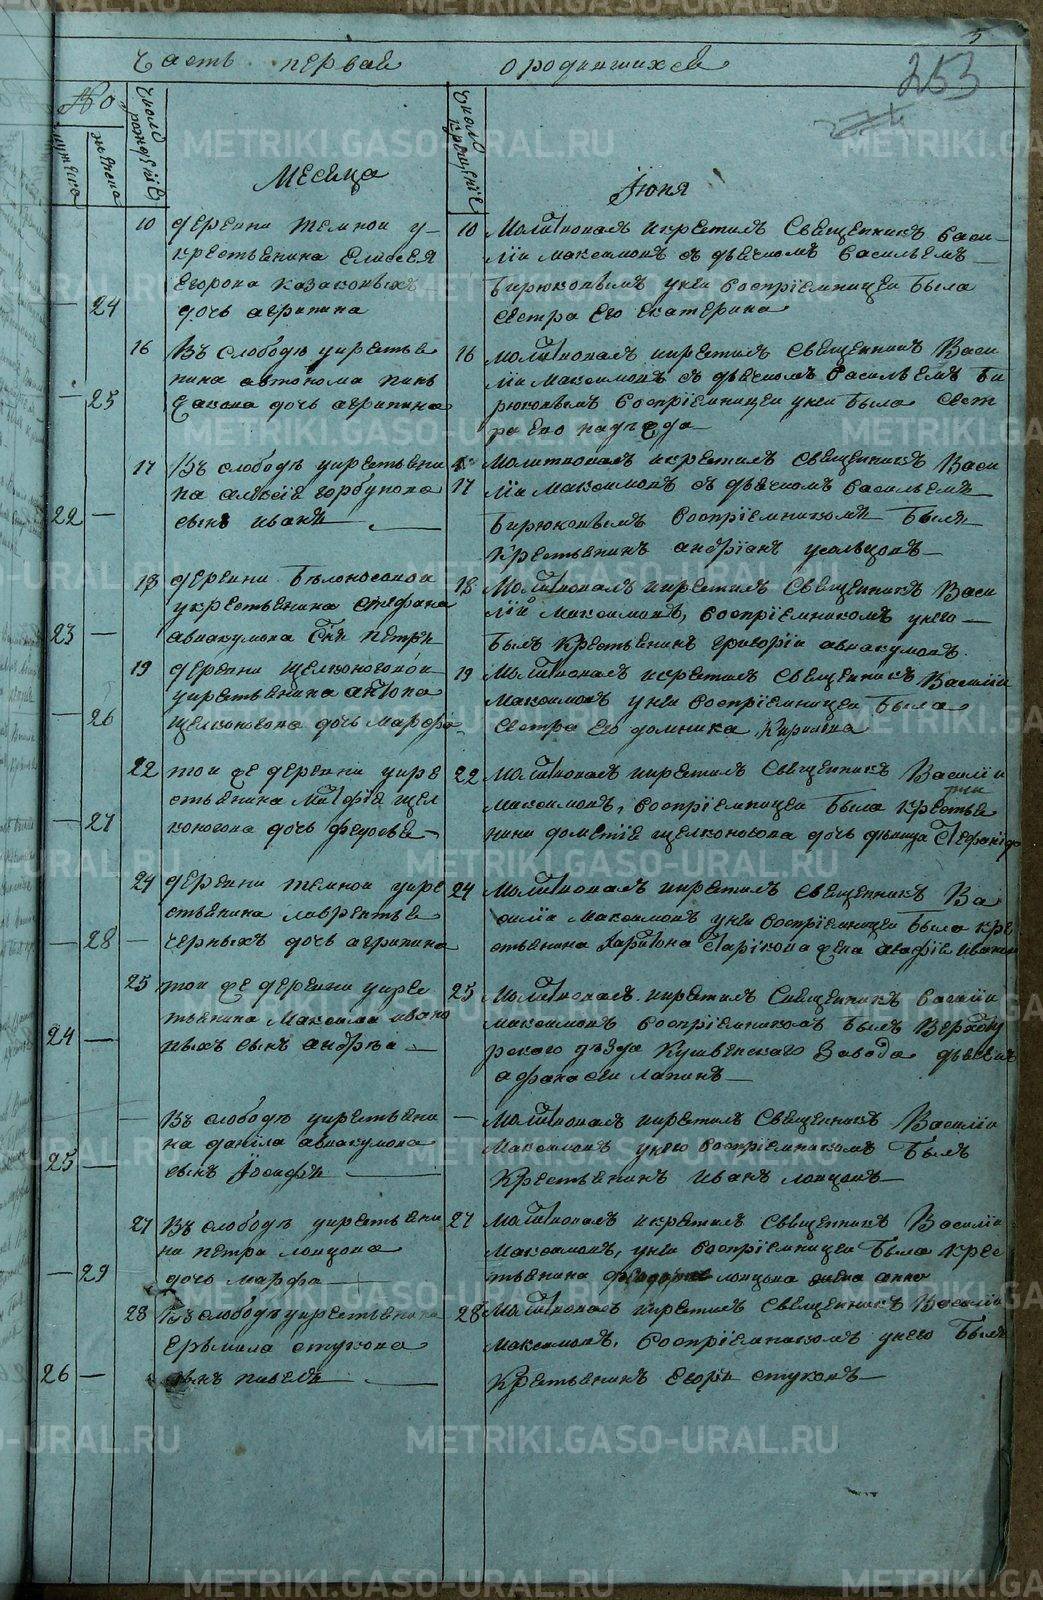 5
Часть первая о родившихся
253
No
мужеска
женска
Число рождениѣ
Число крещениѣ
Месяца
Їюня
10 деревни темной у
крестьянина Елисея
Егорова казаковыхъ
24 дочь агрипина
10 Молитвовалъ икрестилъ Священникъ васи
лїи максимовъ съ дьячкомъ васильемъ
Бирюковымъ унеи восприемницеи была
сестра его екатерина
16 Въ слободѣ укрестья
нина автонома
25 дочь агрипина
16 молитвовалъ икрестилъ священникъ Васи
лїи максимовъ съ дьячкомъ васильемъ Би
рюковымъ восприемницеи унеи была сест
ра его надежда
17 Въ слободѣ укрестьяни
на алексѣя горбунова
22 сынъ иванъ
17 Молитвовалъ икрестилъ священникъ Васи
лїи максимовъ съ дьячкомъ васильемъ
Бирюковымъ восприемникомъ былъ
Крестьянинъ андрїанъ усольцовъ
18 деревни Бѣлоносовой
укрестьянина стефана
23 аввакумова сынъ петръ
18 Молитвовалъ икрестилъ священникъ Васи
лїи максимовъ, восприемникомъ унего
былъ Крестьянинъ григорїи аввакумовъ
19 деревни щелконоговой
укрестьянина антона
26 щелконогова дочь марфа
19 Молитвовалъ икрестилъ священникъ Василїи
максимовъ унеи восприемницеи была
сестра его домника
22 тои же деревни укре
стьянина щел
27 коногова дочь федосья
22 молитвовалъ икрестилъ священникъ Василїи
максимовъ, восприемницеи была крестья
нина щелконогова дочь дѣвица стефанида
24 деревни темной укре
стьянина лаврентья
28 черныхъ дочь агрипина
24 Молитвовалъ икрестилъ священникъ Ва
силїи максимовъ унеи восприемницеи была кре
стьянина Харитона старикова жена агафїя иванова
25 тои же деревни укрес
тьянина Максима ивано
24 выхъ сынъ андрѣй
25 Молитвовалъ икрестилъ Священникъ василїи
максимовъ восприемникомъ былъ Верхоту
рского уѣзда Кушвенского Завода
афанасеи лапинъ
Въ слободѣ укрестьяни
на данїла аввакумова
25 сынъ Їосифъ
Молитвовалъ икрестилъ Священникъ Василїи
максимовъ унего восприемникомъ былъ
Крестьянинъ иванъ лонцовъ
27 Въ слободѣ укрестьяни
на петра лонцова
29 дочь марфа
27 Молитвовалъ икрестилъ Священникъ Василїи
максимовъ, унеи восприемницеи была крес
тьянина лонцова жена анна
28 Въ слободѣ укрестьянина
Ермила стукова
26 сынъ павелъ
28 Молитвовалъ икрестилъ священникъ Василїи
максимовъ, восприемникомъ унего былъ
Крестьянинъ егоръ стуковъ
METRIKI.GASO-URAL.RU